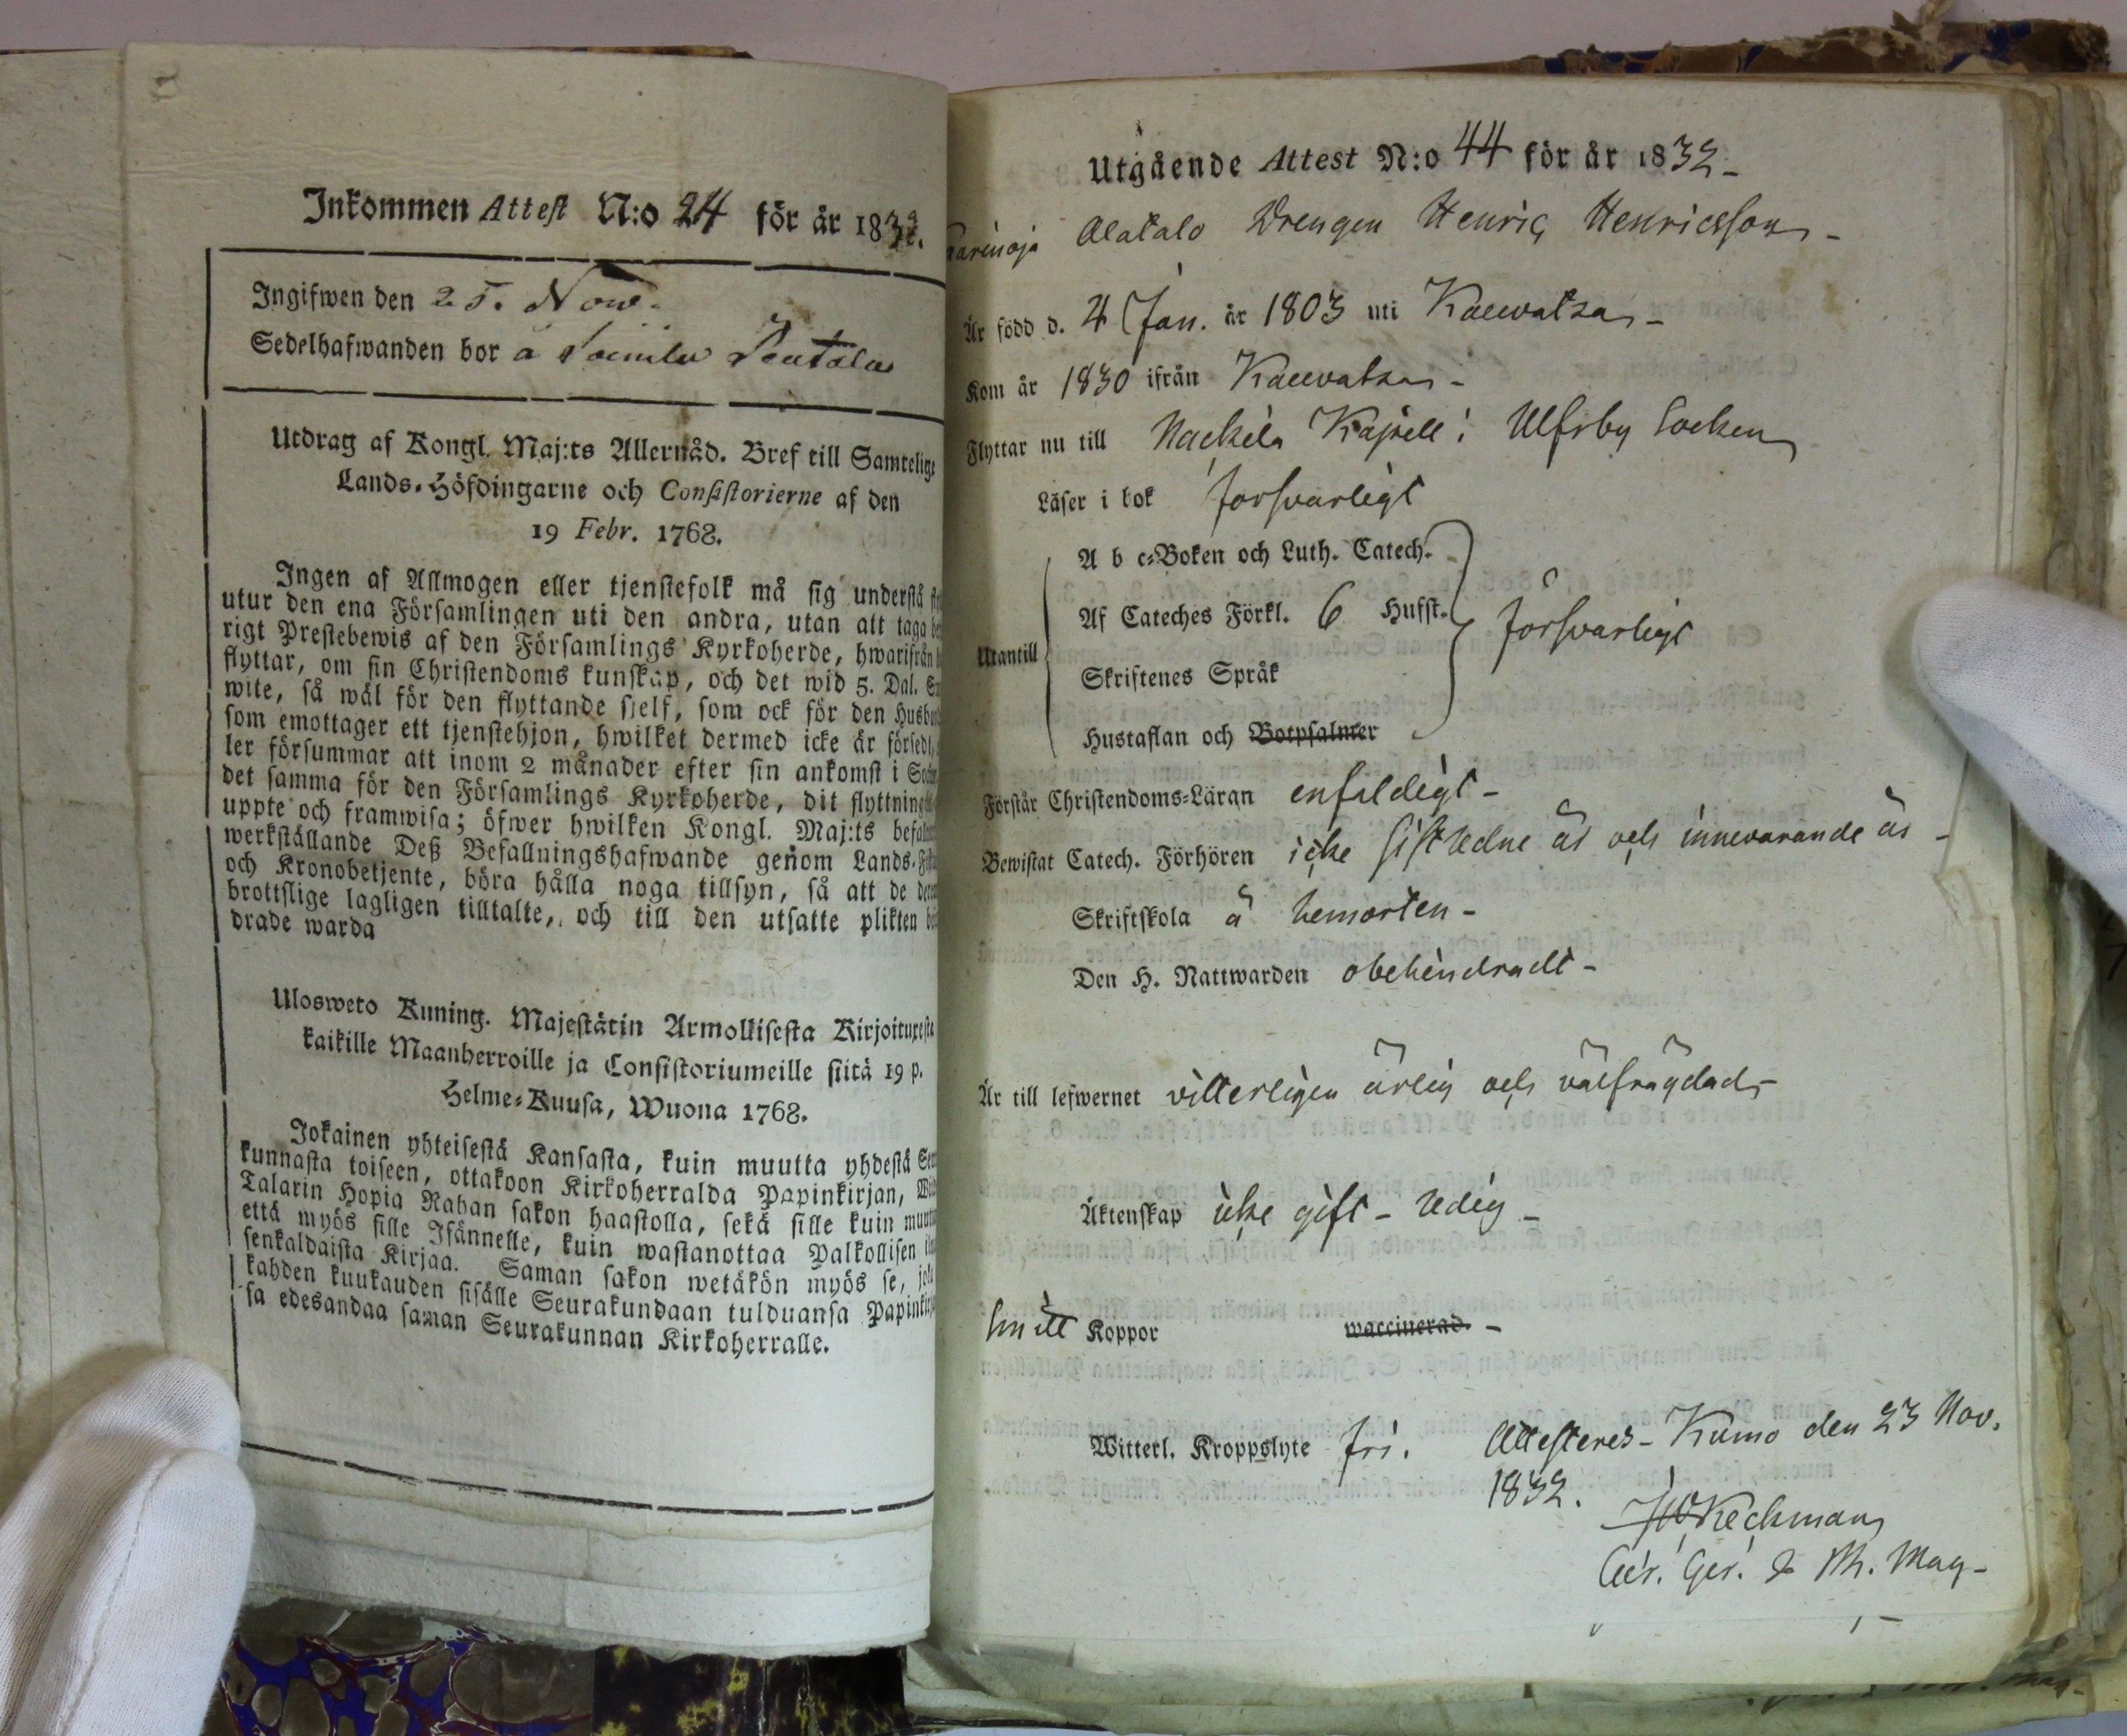 Inkommen Attest N:o 24 för år 1832.
Ingifwen den 25. Now.
Sedelhafwanden bor å Soinila Pentala
Utdrag af Kongl. Maj:ts Allernåd. Bref till Samtelige
Lands-Höfdingarne och Consistorierne af den
19 Febr. 1768.
Ingen af Allmogen eller tjenstefolk må sig understå
utur den ena Församlingen uti den andra, utan att taga
rigt Prestebewis af den Församlings Kyrkoherde, hwarifrån
flyttar, om sin Christendoms kunskap, och det wid 5. Dal.
wite, så wäl för den flyttande sjelf, som ock för den
som emottager ett tjenstehjon, hwilket dermed icke är
ler försummar att inom 2 månader efter sin ankomst i
det samma för den Församlings Kyrkoherde, dit
uppte och framwisa; öfwer hwilken Kongl. Maj:ts
werkställande Deß Befallningshafwande genom Lands-
och Kronobetjente, böra hålla noga tillsyn, så att de
brottslige lagligen tilltalte, och till den utsatte plikten
drade warda
Ulosweto Kuning. Majestätin Armollisesta Kirjoituxesta
kaikille Maanherroille ja Consistoriumeille siitä 19 p.
Helme-Kuusa, Wuona 1768.
Jokainen yhteisestä Kansasta, kuin muutta yhdestä
kunnasta toiseen, ottakoon Kirkoherralda Papinkirjan,
Talarin Hopia Rahan sakon haastolla, sekä sille kuin
että myös sille Isännelle, kuin wastanottaa Palkollisen
senkaldaista Kirjaa. Saman sakon wetäkön myös se,
kahden kuukauden sisälle Seurakundaan tulduansa
sa edesandaa saman Seurakunnan Kirkoherralle.
Utgående Attest N:o 44 för år 1832-
Alatalo Drengen Henric Henricsson-
Är född d. 4 Jan. år 1803 uti Kauvatsa-
Kom år 1830 ifrån Kauvatsa-
Flyttar nu till Nackila Kapell i Ulfsby Socken
Läser i bok försvarligt
A b c-Boken och Luth. Catech.
Af Cateches Förkl. 6 Hufst. försvarligt
Utantill
Skriftenes Språk
Hustaflan och Botpsalmer
Förstår Christendoms-Läran enfaldigt-
Bewistat Catech. Förhören icke sistledne år och innevarande år-
Skriftskola å hemorten-
Den H. Nattwarden obehindradt-
Är till lefwernet vitterligen ärlig och välfrägdad-
Äktenskap icke gift - ledig-
haft Koppor waccinerad. -
Witterl. Kroppslyte fri. Attesteres- Kumo den 23 Nov.
1832.
Keckman